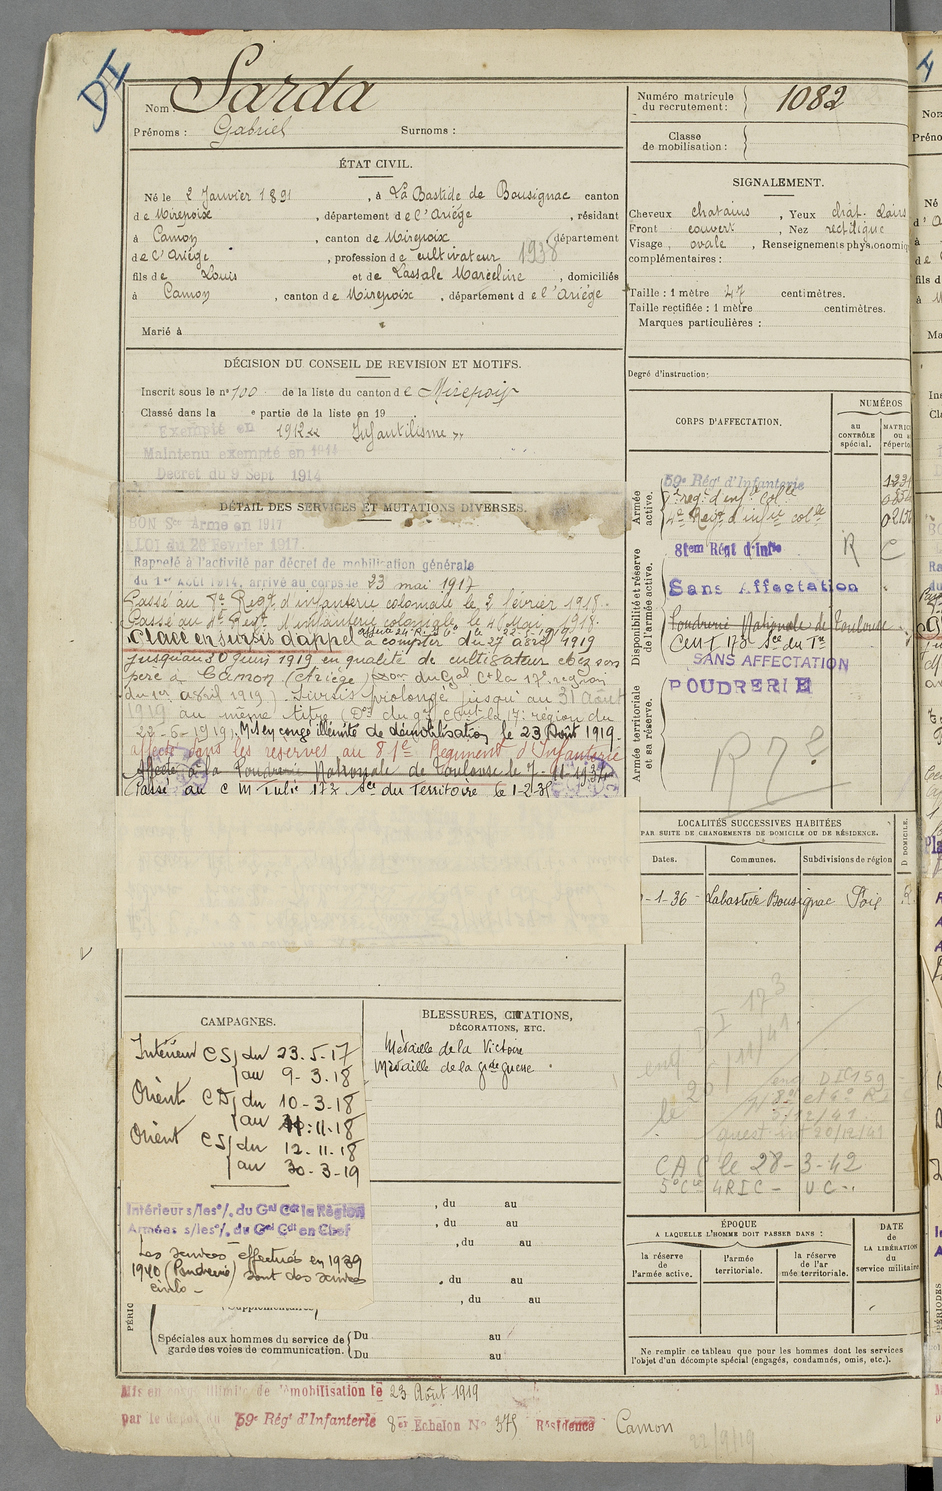 DI
Nom Sarda
Prénoms : Gabriel Surnoms :
Numéro matricule du recrutement : 1082
Classe de mobilisation :
ÉTAT CIVIL.
Né le 2 Janvier 1891, à La Bastide de Bousignac canton
de Mirepoix, département de l'Ariège, résidant
à Camon, canton de Mirepoix, département
de l'Ariège, profession de cultivateur 1938
fils de Louis et de Lassale Marceline, domiciliés
à Camon, canton de Mirepoix, département de l'Ariège
Marié à
SIGNALEMENT.
Cheveux chatains, Yeux chat. clairs
Front couvert, Nez rectiligne
Visage, ovale, Renseignements physionomiq
complémentaires :
Taille : 1 mètre 47 centimètres.
Taille rectifiée : 1 mètre centimètres.
Marques particulières :
Degré d'instruction:
DÉCISION DU CONSEIL DE REVISION ET MOTIFS.
Inscrit sous le n° 100 de la liste du canton de Mirepoix
Classé dans la e partie de la liste en 19
Exempté en 1912 Infantilisme
Maintenu exempté en 1914
Décret du 9 Sept 1914
DÉTAIL DES SERVICES ET MUTATIONS DIVERSES.
BON Sce Armé en 1917
LOI du 20 Février 1917.
Rappelé à l'activité par décret de mobilisation générale
du 1er AOUT 1914, arrivé au corps le 23 mai 1917
Passé au 7e Regt d'infanterie coloniale le 2 février 1918.
Passé au 4e Regt d'infanterie coloniale le 16 Mai 1918.
Placé en sursis d'appel à compter du 27 avril 1919
jusqu'au 30 juin 1919 en qualité de cultivateur chez son
père à Camon (Ariège) du Gal Ct la 17e région
du 1er avril 1919). Sursis prolongé jusqu'au 31 Août
1919 au même titre (Don du gal Cmt la 17e région du
22-6-1919). Mis en congé illimité de démobilisation le 23 Août 1919.
affecté dans les réserves au 81e Régiment d'Infanterie
Affecté à la Poudrerie Nationale de Toulouse le 7-11-1934
Passé au C M Tulié 173 Sce du Territoire le 1-2-38
CORPS D'AFFECTATION.
NUMÉROS
au CONTRÔLE spécial.
MATRIC ou répertoi
Armée active.
59e Rég' d'Infanterie
7e reg. d'inf. Colle
4e Regt d'infie colle
Disponibilité et réserve de l'armée active.
81em Régt d'Infie R C
Sans Affectation
Poudrerie Nationale de Toulouse
CMT 173 Sce du Tre
SANS AFFECTATION
Armée territoriale et sa réserve.
POUDRERIE
LOCALITÉS SUCCESSIVES HABITÉES
PAR SUITE DE CHANGEMENTS DE DOMICILE OU DE RÉSIDENCE.
Dates. Communes. Subdivisions de région D. DOMICILE.
-1-36 - Labastide Bousignac Foix R
DI 173
enq 26/11/41
DI 159
5/12/41
20/12/41
CAC le 28-3-42
5e Cie 4RIC - UC
CAMPAGNES.
Intérieur CS du 23.5.17
au 9-3.18
Orient CD du 10-3-18
au 11.11-18
Orient CS du 12.11.18
au 30-3-19
Intérieur s/les°/. du Gal Cdt la Région
Armées s/les°/. du Gal Cdt en Chef
Les services effectués en 1939
1940 (Poudrerie) sont des services
civils -
BLESSURES, CITATIONS,
DÉCORATIONS, ETC.
Médaille de la Victoire
Médaille de la gde guerre
, du au
, du au
, du au
, du au
, du au
supplémentaires
PÉRIO
Spéciales aux hommes du service de garde des voies de communication. Du au
Du au
ÉPOQUE
A LAQUELLE L'HOMME DOIT PASSER DANS :
la réserve de l'armée active.
l'armée territoriale.
la réserve de l'armée territoriale.
DATE de LA LIBÉRATION du service militaire
Ne remplir ce tableau que pour les hommes dont les services
l'objet d'un décompte spécial (engagés, condamnés, omis, etc.).
Mis en congé illimité de démobilisation le 23 Août 1919
par le dépôt du 59e Rég' d'Infanterie 8er Echelon N° 375 Résidence Camon
22/9/19